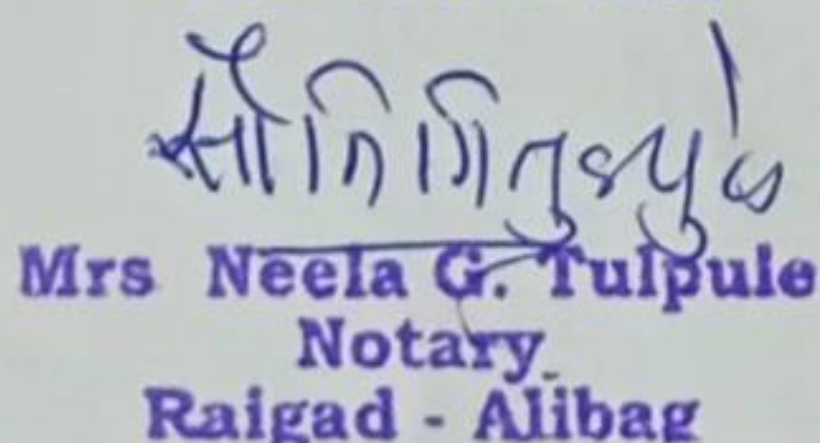 सौ नि गि तुळपुळे
Mrs Neela G. Tulpule
Notary
Raigad - Alibag